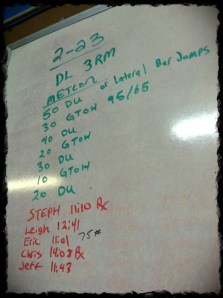 2-23
DL 3RM
METCON
50 DU or Lateral Bar Jumps
30 GTOH 95/65
40 DU
20 GTOH
30 DU
10 GTOH
20 DU
STEPH 11:10 Rx
Leigh 12:41
Eric 11:01 75#
Chris 14:03 Rx
Jeff 11:43